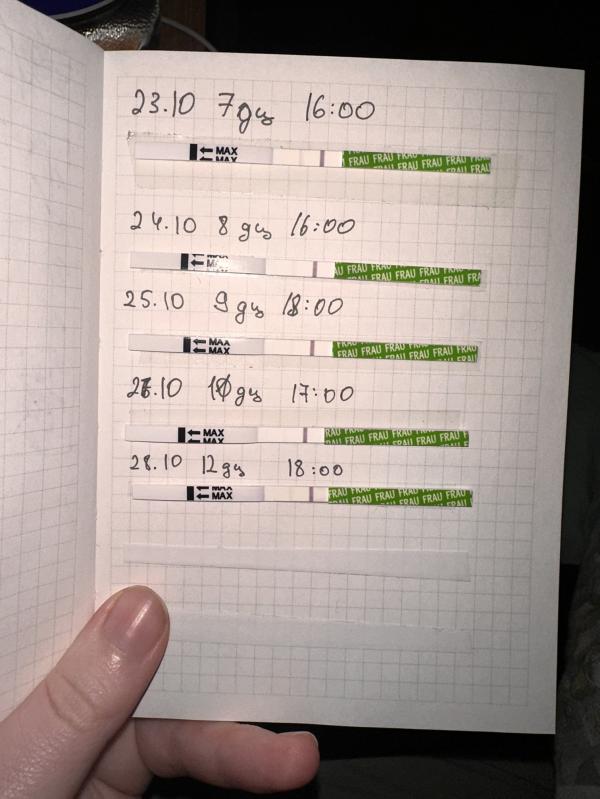 23.10 7 дц 16:00
← MAX
← MAX
FRAU FRAU FRAU FRAU FRAU
24.10 8 дц 16:00
← MAX
AU FRAU FRAU FRAU FRAU FRA
25.10 9 дц 18:00
← MAX
← MAX
FRAU FRAU FRAU FRAU FRAU
10 дц 17:00
← MAX
← MAX
RAU FRAU FRAU FRAU FRAU FRAU
28.10 12 дц 18:00
← MAX
← MAX
FRAU FRAU FRAU FRAU FRAU